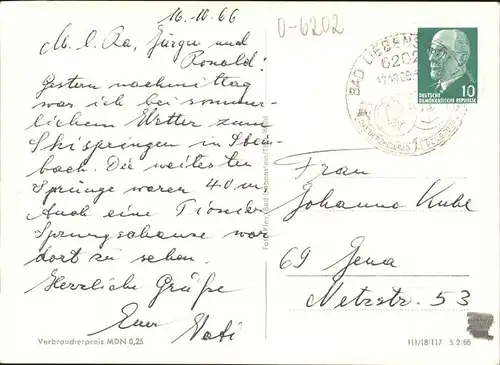 16.10.66
0-6202
M. l. Ra, Jürgen und
Ronald!
Gestern nachmittag
war ich bei sommer-
lichem Wetter zum
Skispringen in Stein-
bach. Die weitesten
Sprünge waren 40 m
Auch eine Pionier
Sprungschanze war
dort zu sehen.
Herzliche Grüße
Euer Vati
BAD LIEBENSTEIN
6202
DEUTSCHE
DEMOKRATISCHE REPUBLIK
10
Frau
Johanna Kube
69 Jena
Netzstr. 53
Verbraucherpreis MDN 0,25
111/18/117 S 2/65